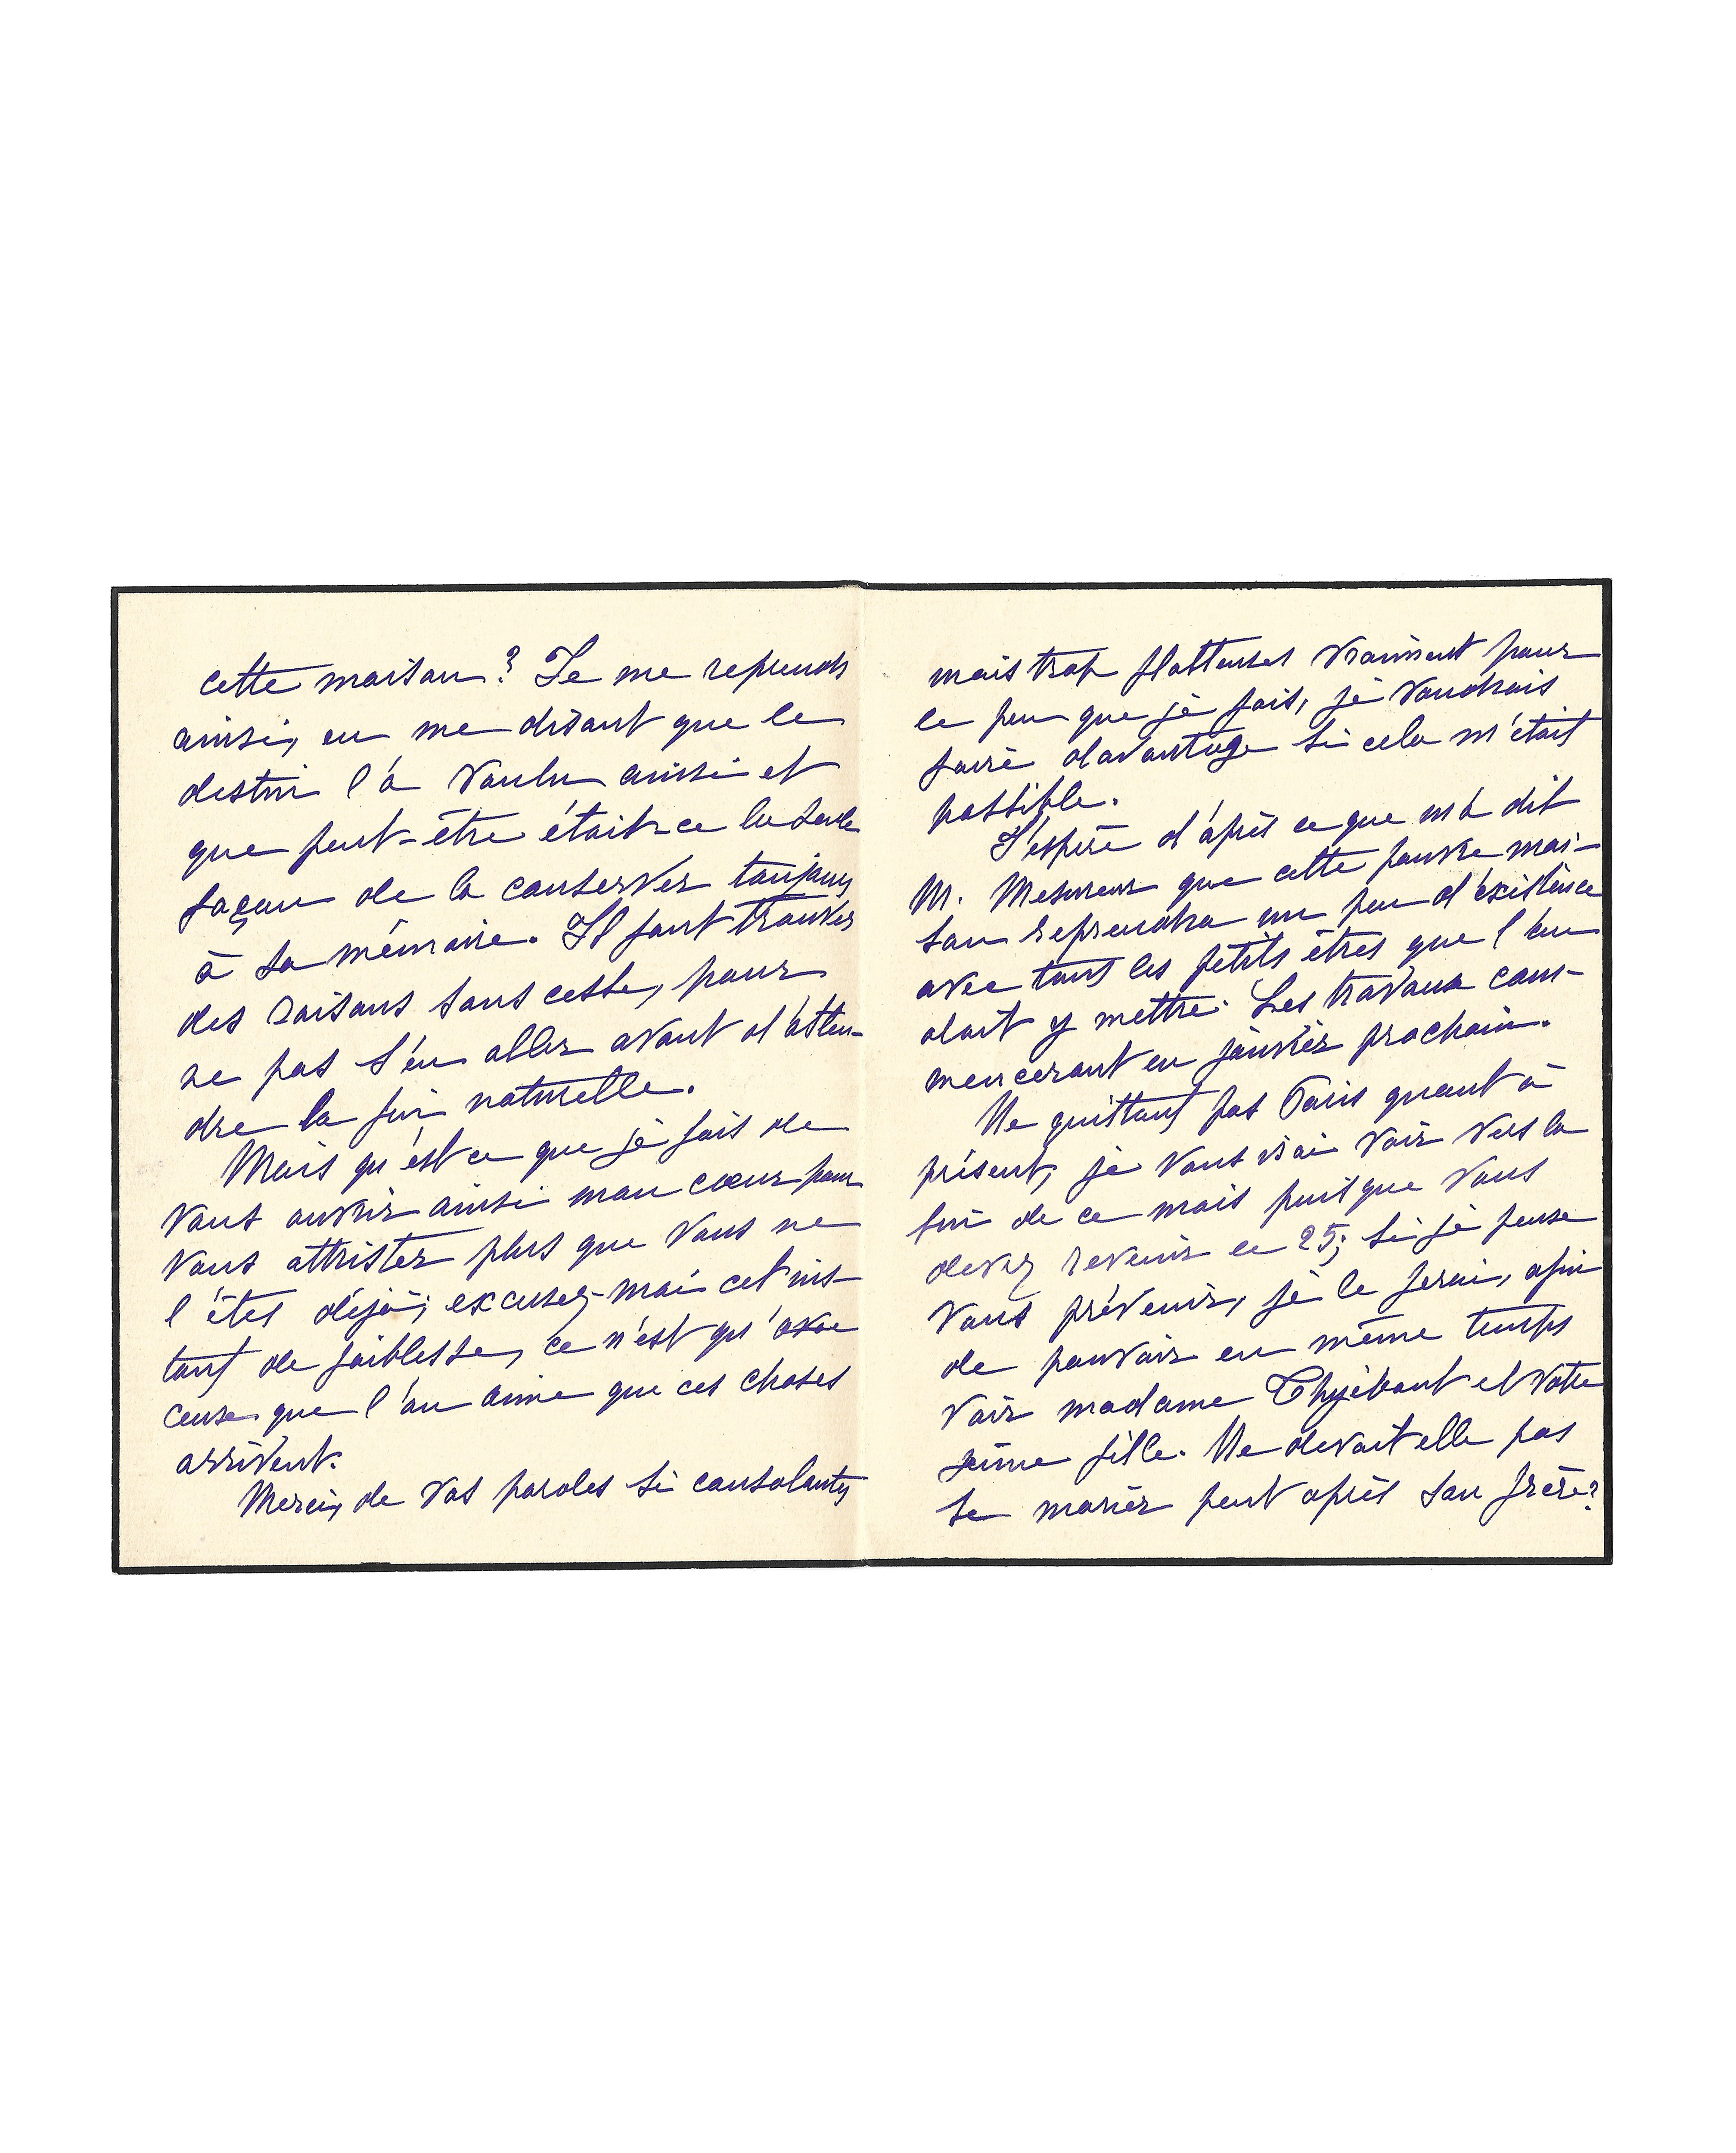 cette maison? Je me reprends
ainsi, en me disant que le
destin l'a voulu ainsi et
que peut-être était-ce la seule
façon de la conserver toujours
à sa mémoire. Il faut trouver
des raisons sans cesse, pour
ne pas s'en aller avant d'atten-
dre la fin naturelle.
Mais qu'est ce que je fais de
vous ouvrir ainsi mon cœur pour
vous attrister plus que vous ne
l'êtes déjà; excusez-moi cet ins-
tant de faiblesse, ce n'est qu'avec
ceux que l'on aime que ces choses
arrivent.
Merci, de vos paroles si consolantes
mais trop flatteuses vraiment pour
le peu que je fais, je voudrais
faire davantage si cela m'était
possible.
J'espère d'après ce que m'a dit
M. Mesureur que cette pauvre mai-
son reprendra un peu d'existence
avec tous les petits êtres que l'on
doit y mettre. Les travaux com-
menceront en janvier prochain.
Ne quittant pas Paris quant à
présent, je vous irai voir vers la
fin de ce mois puisque vous
devez revenir le 25; si je pense
vous prévenir, je le ferai, afin
de pouvoir en même temps
voir madame Thyébaut et votre
jeune fille. Ne devait elle pas
se marier peut après son frère?